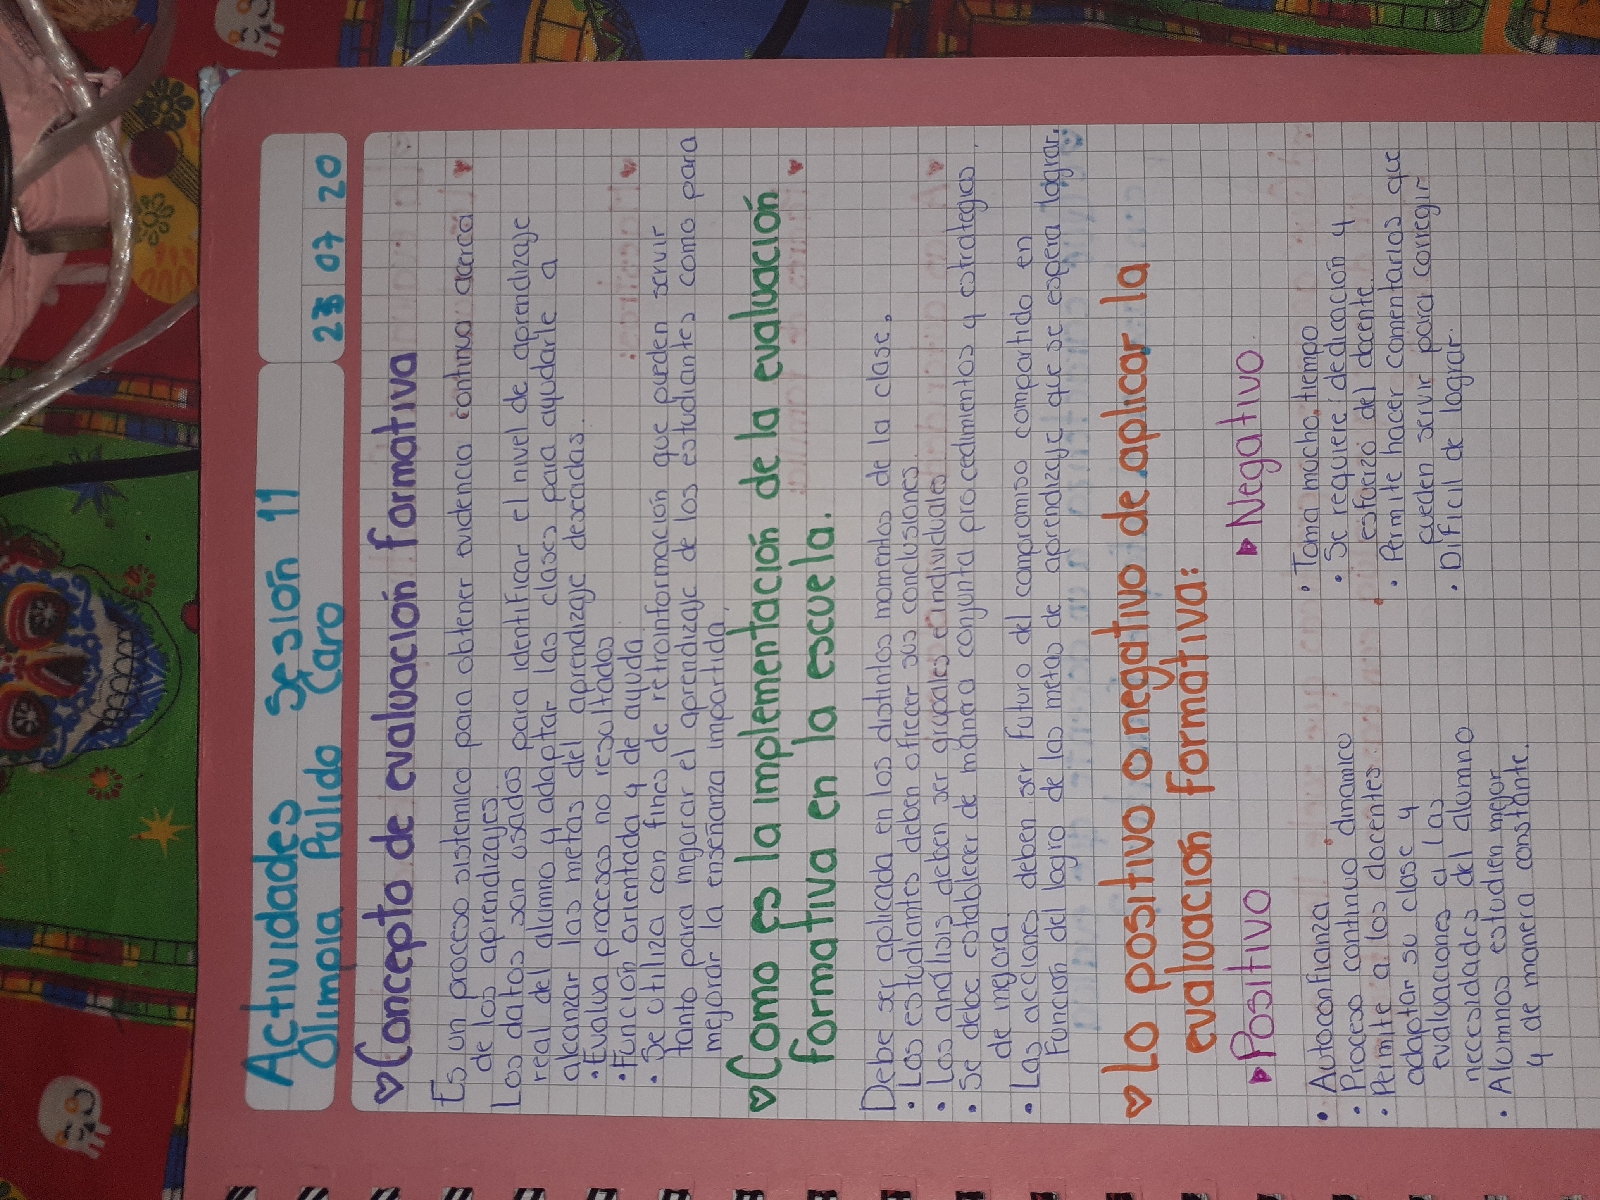 Actividades Sesión 11
Olimpia Pulido Caro 23 07 20
Concepto de evaluación formativa
Es un proceso sistémico para obtener evidencia continua acerca
de los aprendizajes.
Los datos son usados para identificar el nivel de aprendizaje
real del alumno y adaptar las clases para ayudarle a
alcanzar las metas del aprendizaje deseadas.
• Evalua procesos no resultados
• Función orientada y de ayuda.
• Se utiliza con fines de retroinformación que pueden servir
tanto para mejorar el aprendizaje de los estudiantes como para
mejorar la enseñanza impartida.
Como es la implementación de la evaluación
formativa en la escuela.
Debe ser aplicada en los distintos momentos de la clase.
• Los estudiantes deben ofrecer sus conclusiones.
• Los análisis deben ser grupales e individuales
• Se debe establecer de manera conjunta procedimientos y estrategias
de mejora.
• Las acciones deben ser futuro del compromiso compartido en
función del logro de las metas de aprendizaje que se espera lograr.
Lo positivo o negativo de aplicar la
evaluación formativa:
Positivo
• Autoconfianza
• Proceso continuo dinamico
• Permite a los docentes
adaptar su clase y
evaluaciones a las
necesidades del alumno
• Alumnos estudien mejor
y de manera constante.
Negativo
• Toma mucho tiempo
• Se requiere dedicación y
esfuerzo del docente.
• Permite hacer comentarios que
pueden servir para corregir
• Dificil de lograr.